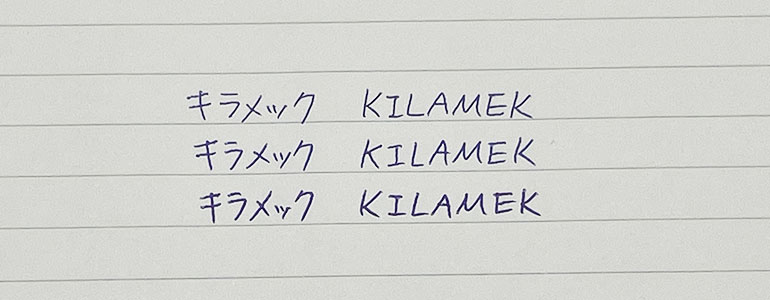 キラメック KILAMEK
キラメック KILAMEK
キラメック KILAMEK